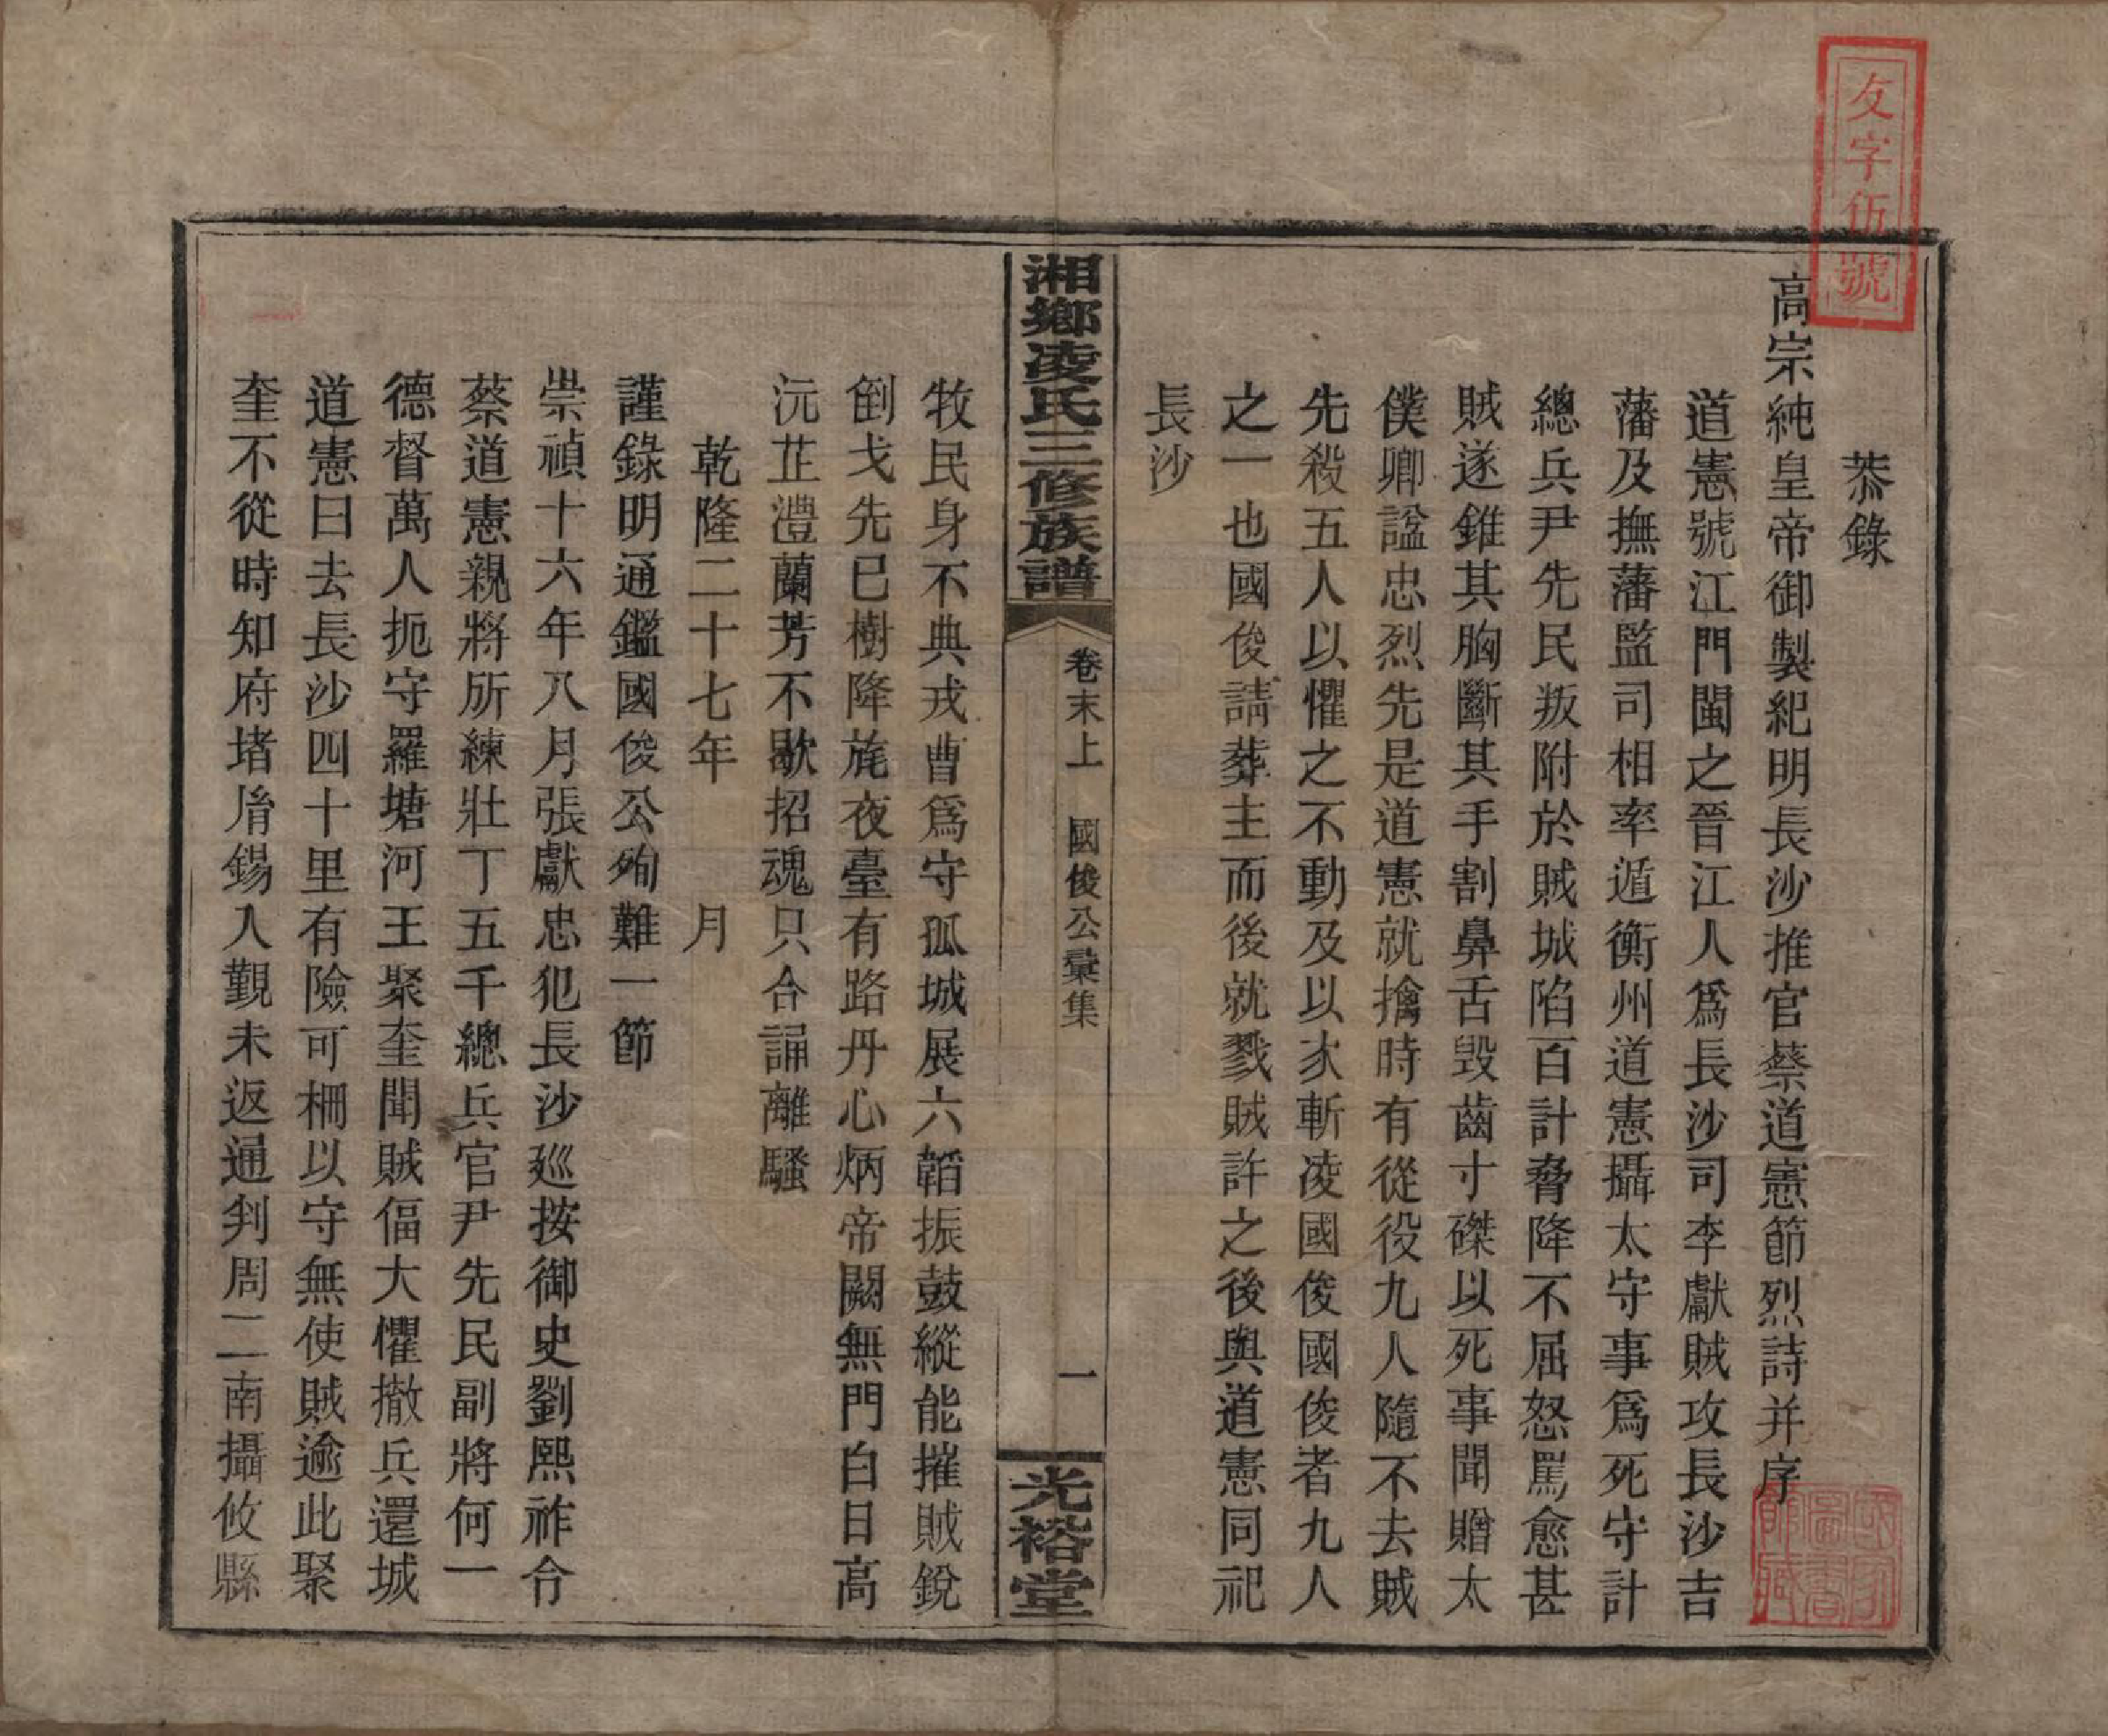 攵字伍號
恭錄
高宗純皇帝御製紀明長沙推官蔡道憲節烈詩并序
道憲號江門閩之晉江人爲長沙司李獻賊攻長沙吉
藩及撫藩監司相率遁衡州道憲攝太守事爲死守計
總兵尹先民叛附於賊城陷百計脅降不屈怒罵愈甚
賊遂錐其胸斷其手割鼻舌毀齒寸磔以死事聞贈太
僕卿諡忠烈先是道憲就擒時有從役九人隨不去賊
先殺五人以懼之不動及以次斬凌國俊國俊者九人
之一也國俊請葬主而後就戮賊許之後與道憲同祀
長沙
湘鄉凌氏三修族譜
卷末上 國俊公彙集
一
光裕堂
牧民身不典戎曹爲守孤城展六韜振鼓縱能摧賊銳
倒戈先已樹降旄夜臺有路丹心炳帝闕無門白日高
沅芷澧蘭芳不歇招魂只合誦離騷
乾隆二十七年 月
謹錄明通鑑國俊公殉難一節
崇禎十六年八月張獻忠犯長沙巡按御史劉熙祚令
蔡道憲親將所練壯丁五千總兵官尹先民副將何一
德督萬人扼守羅塘河王聚奎聞賊偪大懼撤兵還城
道憲曰去長沙四十里有險可柵以守無使賊逾此聚
奎不從時知府堵胤錫入覲未返通判周二南攝攸縣
國家圖書館藏